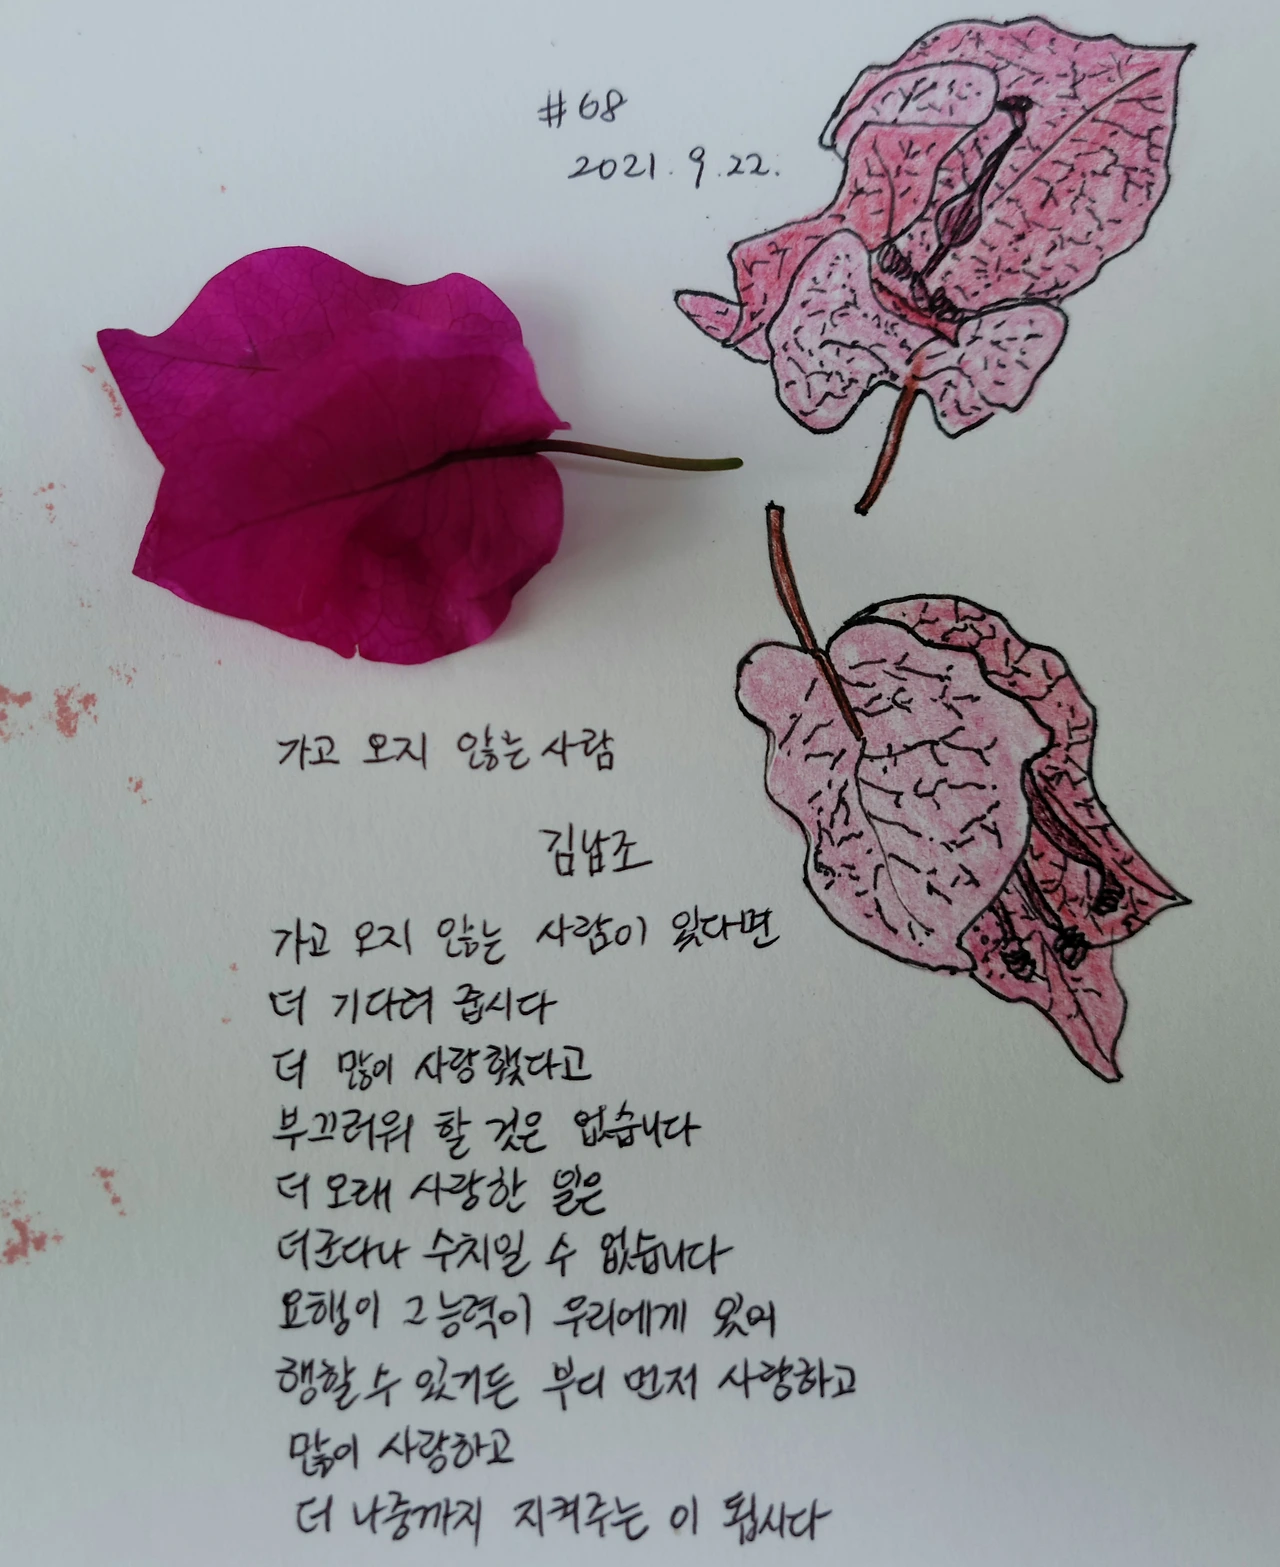 #68
2021.9.22.
가고 오지 않는 사람
김남조
가고 오지 않는 사람이 있다면
더 기다려 줍시다
더 많이 사랑했다고
부끄러워 할 것은 없습니다
더 오래 사랑한 일은
더군다나 수치일 수 없습니다
요행이 그 능력이 우리에게 있어
행할 수 있거든 부디 먼저 사랑하고
많이 사랑하고
더 나중까지 지켜주는 이 됩시다